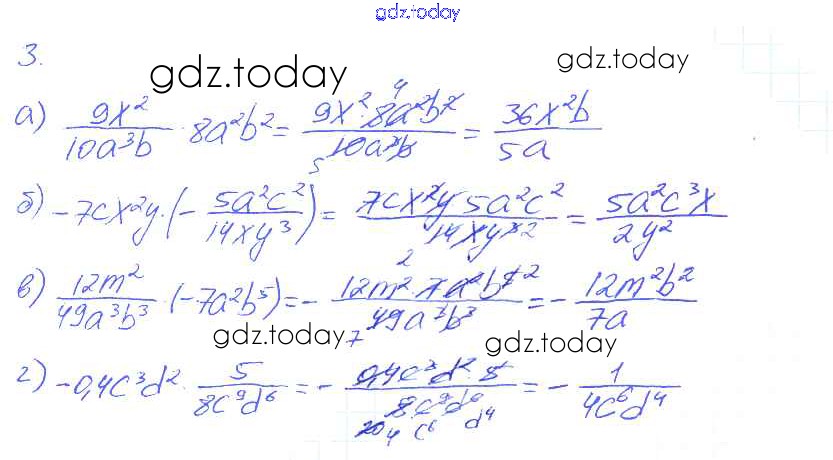 gdz.today
3.
gdz.today gdz.today
а) 9x²/(10a³b) · 8a²b² = (9x² · 8a²b²)/(10a³b) = 36x²b/(5a)
4
5
б) -7cx²y · (- 5a²c²/(14xy³)) = (7cx²y 5a²c²)/(14xy³) = 5a²c³x/(2y²)
2
2
в) 12m²/(49a³b³) · (-7a²b⁵) = - (12m² · 7a²b⁵)/(49a³b³) = - 12m²b²/(7a)
2
7
gdz.today gdz.today
г) -0,4c³d² · 5/(8c⁹d⁶) = - (0,4c³d² · 5)/(8c⁹d⁶) = - 1/(4c⁶d⁴)
20 4 c⁶ d⁴